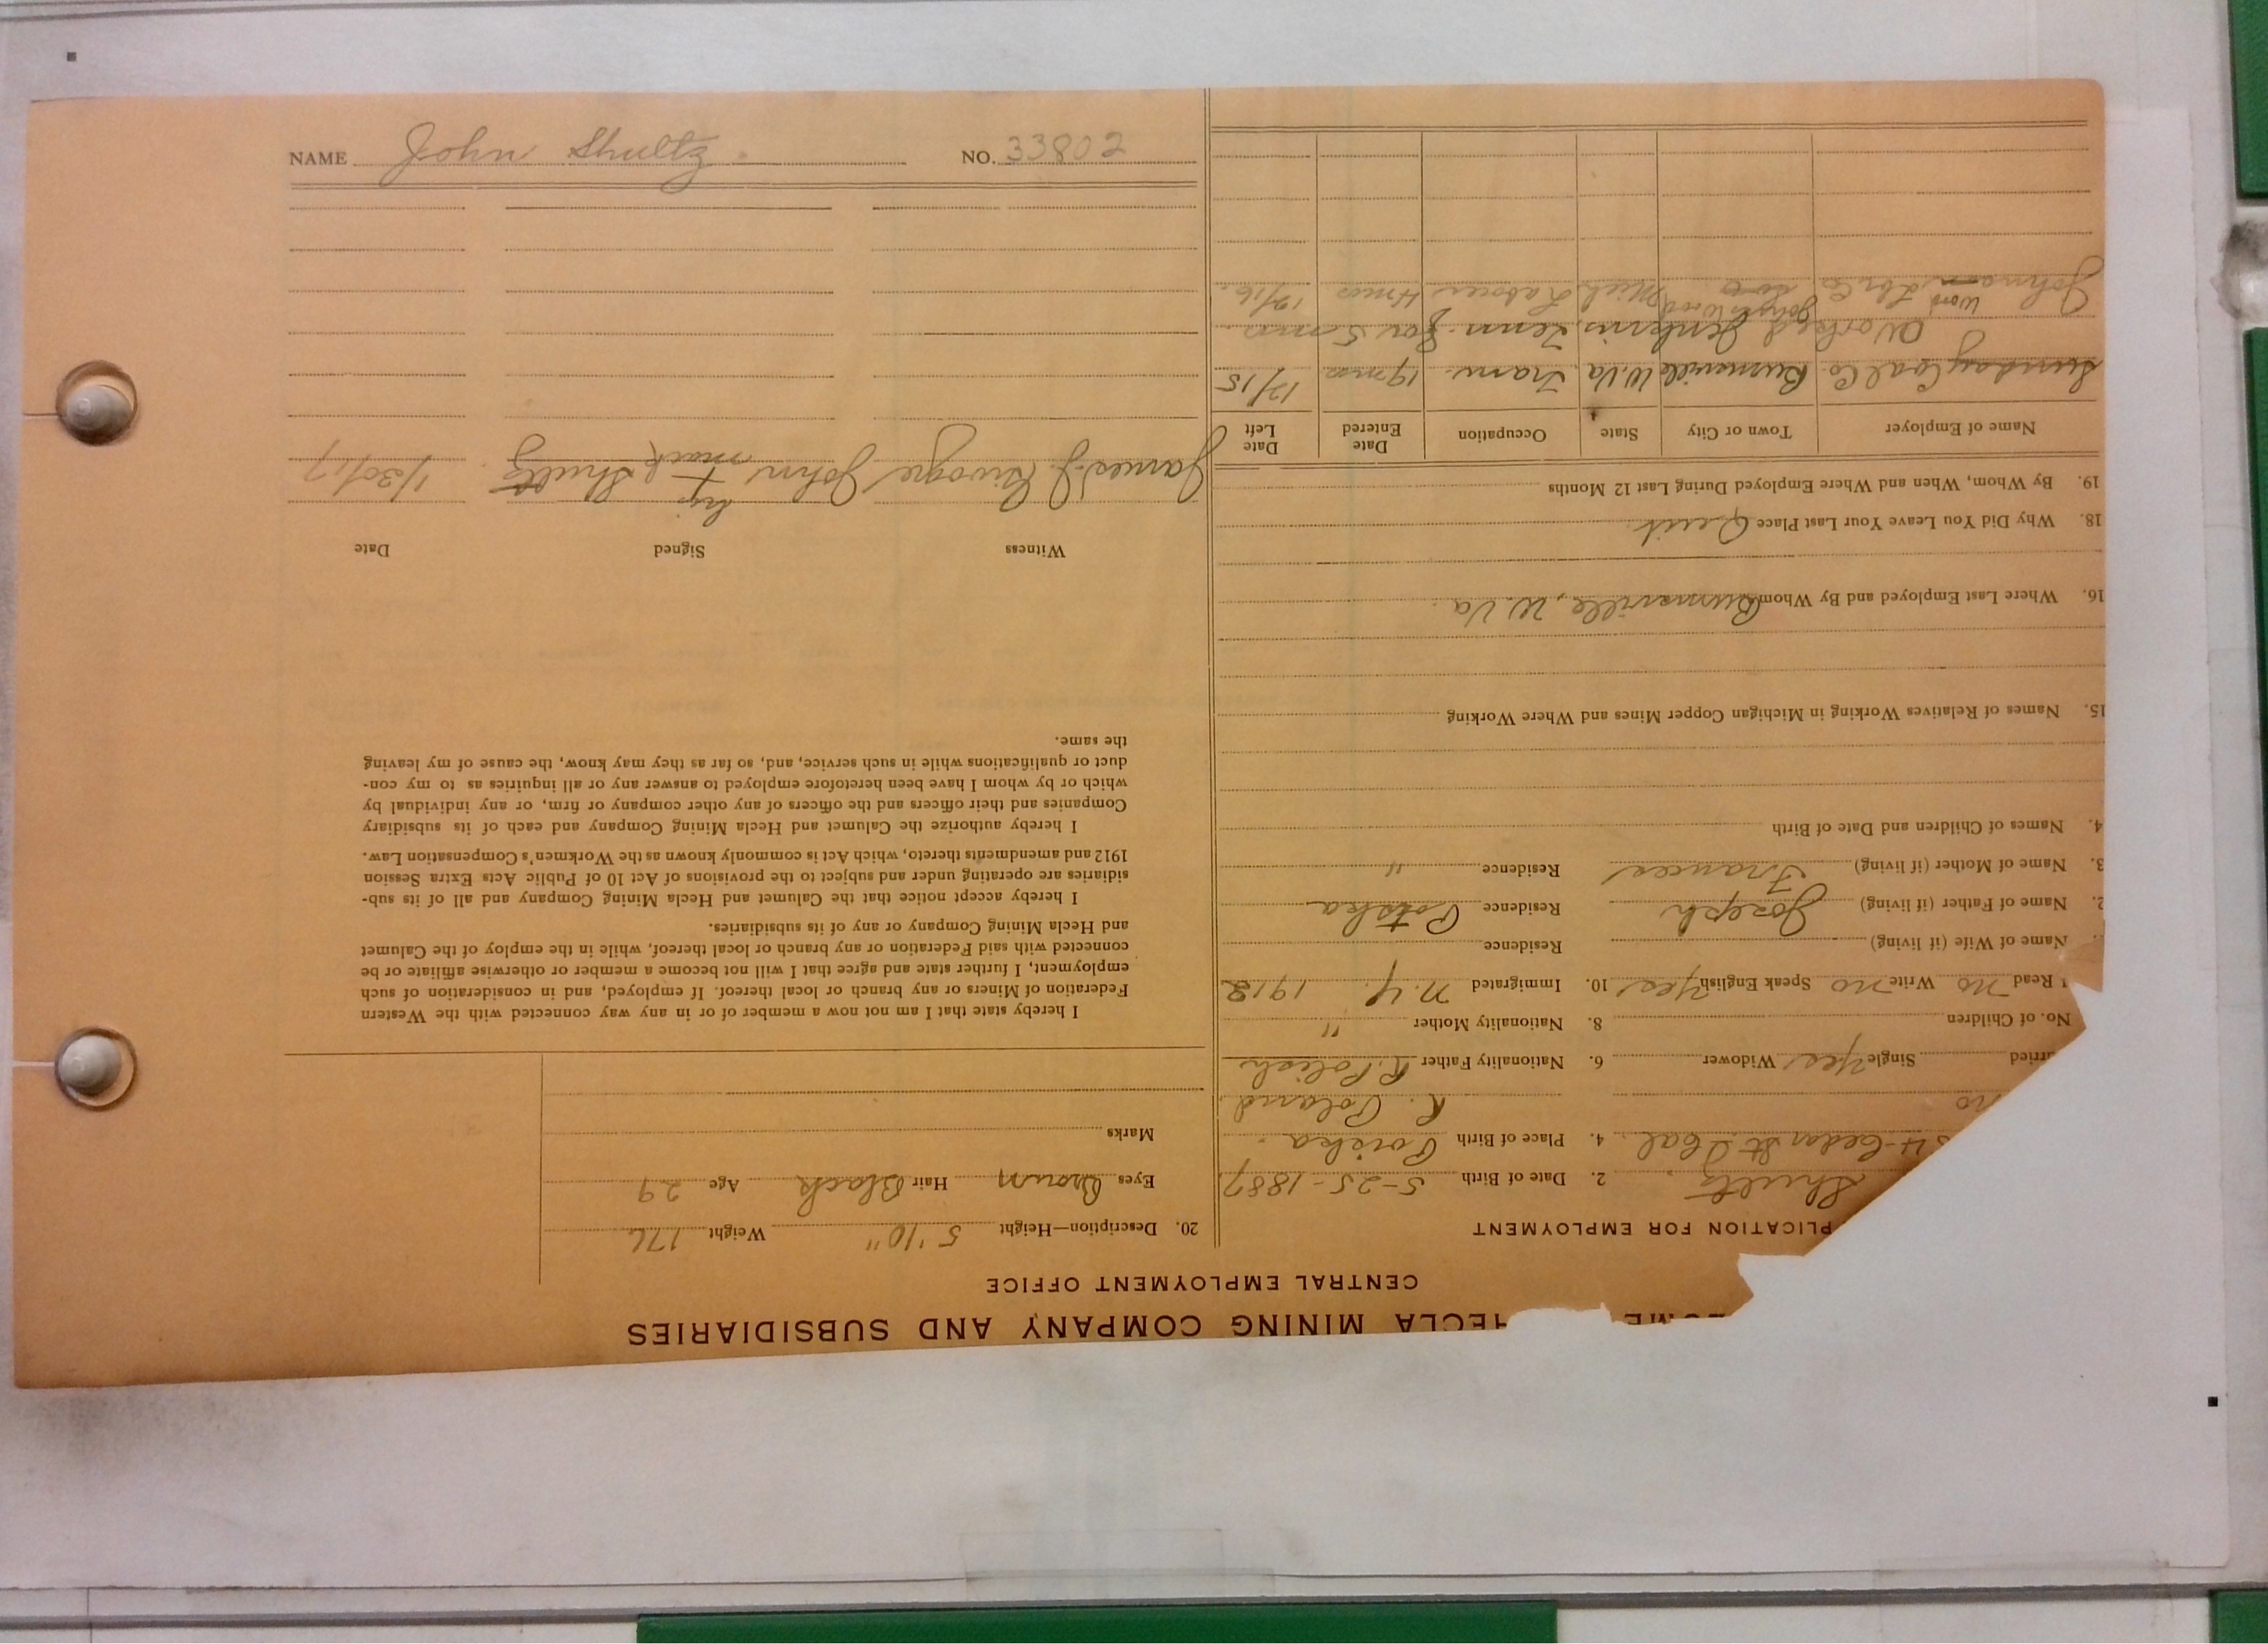 NAME John Shultz. NO. 33802
HECLA MINING COMPANY AND SUBSIDIARIES
CENTRAL EMPLOYMENT OFFICE
PLICATION FOR EMPLOYMENT
Shultz. 2. Date of Birth 5-25-1887
54-Cedar St. 4. Place of Birth
no R. Poland
rried Single Yes Widower 6. Nationality Father R. Polish
No. of Children 8. Nationality Mother "
Read no Write no Speak English Yes 10. Immigrated N.Y. 1912
Name of Wife (if living) Residence
2. Name of Father (if living) Joseph Residence Potska
3. Name of Mother (if living) Frances Residence "
4. Names of Children and Date of Birth
15. Names of Relatives Working in Michigan Copper Mines and Where Working
16. Where Last Employed and By Whom Burnsville, W. Va.
18. Why Did You Leave Your Last Place Quit.
19. By Whom, When and Where Employed During Last 12 Months
Name of Employer Town or City State Occupation Date Entered Date Left
Coal Co. Burnsville W. Va Tram. 19 mos 12/15
Worked Jenkins, Tenn. for 5 mos.
Mich Laborer 4 mos 12/16.
20. Description—Height 5'10" Weight 176
Eyes Brown Hair Black Age 29
Marks
I hereby state that I am not now a member of or in any way connected with the Western
Federation of Miners or any branch or local thereof. If employed, and in consideration of such
employment, I further state and agree that I will not become a member or otherwise affiliate or be
connected with said Federation or any branch or local thereof, while in the employ of the Calumet
and Hecla Mining Company or any of its subsidiaries.
I hereby accept notice that the Calumet and Hecla Mining Company and all of its sub-
sidiaries are operating under and subject to the provisions of Act 10 of Public Acts Extra Session
1912 and amendments thereto, which Act is commonly known as the Workmen's Compensation Law.
I hereby authorize the Calumet and Hecla Mining Company and each of its subsidiary
Companies and their officers and the officers of any other company or firm, or any individual by
which or by whom I have been heretofore employed to answer any or all inquiries as to my con-
duct or qualifications while in such service, and, so far as they may know, the cause of my leaving
the same.
Witness Signed Date
his
James J. John + Shultz 1/30/17
mark